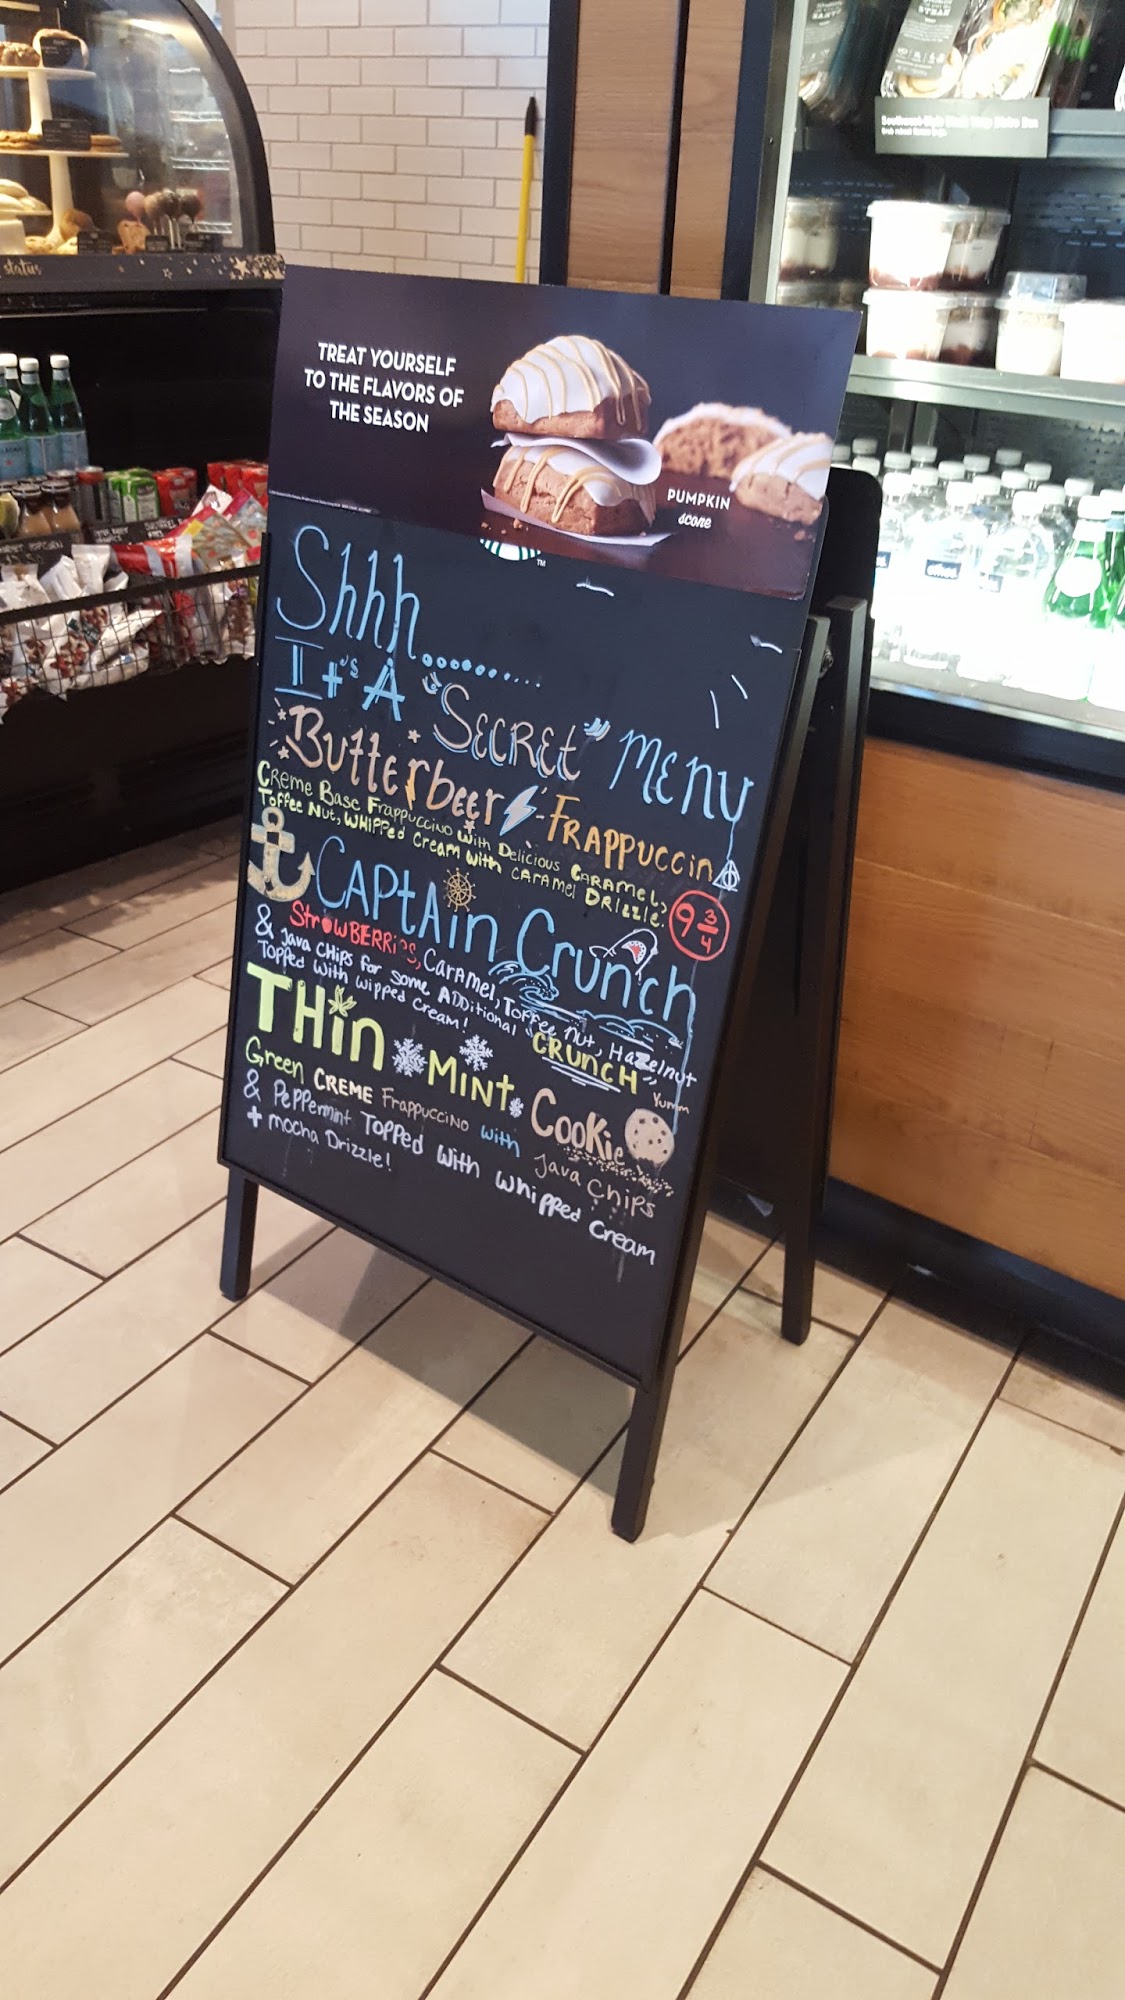 status
TREAT YOURSELF
TO THE FLAVORS OF
THE SEASON
PUMPKIN
scone
TM
Shhh..........
It's A "SECREt" MENU
ButterbeEr - FRAPPUCCINO
CReme Base Frappuccino with Delicious CARAMEL,
Toffee Nut, WHIPPed CReam with CARAMEL DRizzle.
9 3/4
CAPtAin Crunch
StRoWBERRiES, CaRaMeL, Toffee nut, HaZelnut
& Java CHips for some Additional "CRUNCH" Yumm
Topped with wipped cream!
THin MINt Cookie
Green CREME Frappuccino with Java CHiPs
& PePPermint Topped with whipped cream
+ mocha Drizzle!